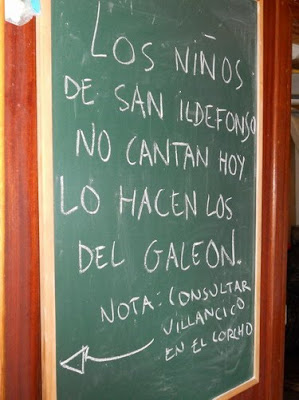 LOS NIÑOS
DE SAN ILDEFONSO
NO CANTAN HOY
LO HACEN LOS
DEL GALEÓN.
NOTA: CONSULTAR
VILLANCICO
EN EL CORCHO